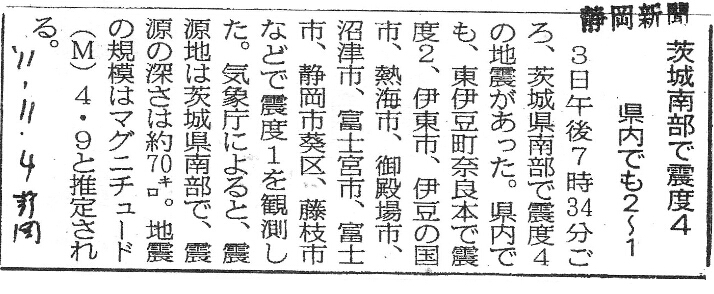 静岡新聞
茨城南部で震度４
県内でも２〜１
３日午後７時34分ご
ろ、茨城県南部で震度４
の地震があった。県内で
も、東伊豆町奈良本で震
度２、伊東市、伊豆の国
市、熱海市、御殿場市、
沼津市、富士宮市、富士
市、静岡市葵区、藤枝市
などで震度１を観測し
た。気象庁によると、震
源地は茨城県南部で、震
源の深さは約70㌔。地震
の規模はマグニチュード
（Ｍ）４・９と推定され
る。
'11.11.4 静岡